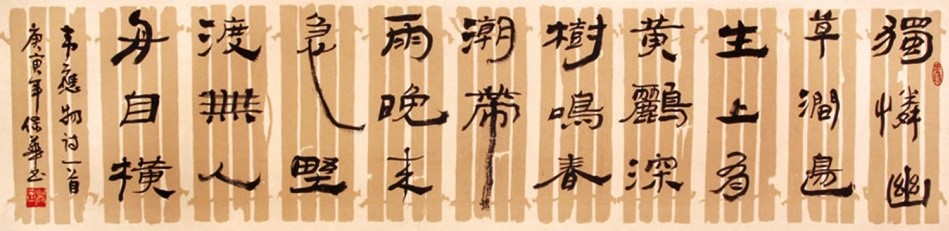 獨憐幽
草澗邊
生上有
黃鸝深
樹鳴春
潮帶
雨晚来
急野
渡無人
舟自橫
韋應物诗一首
庚寅年保華书